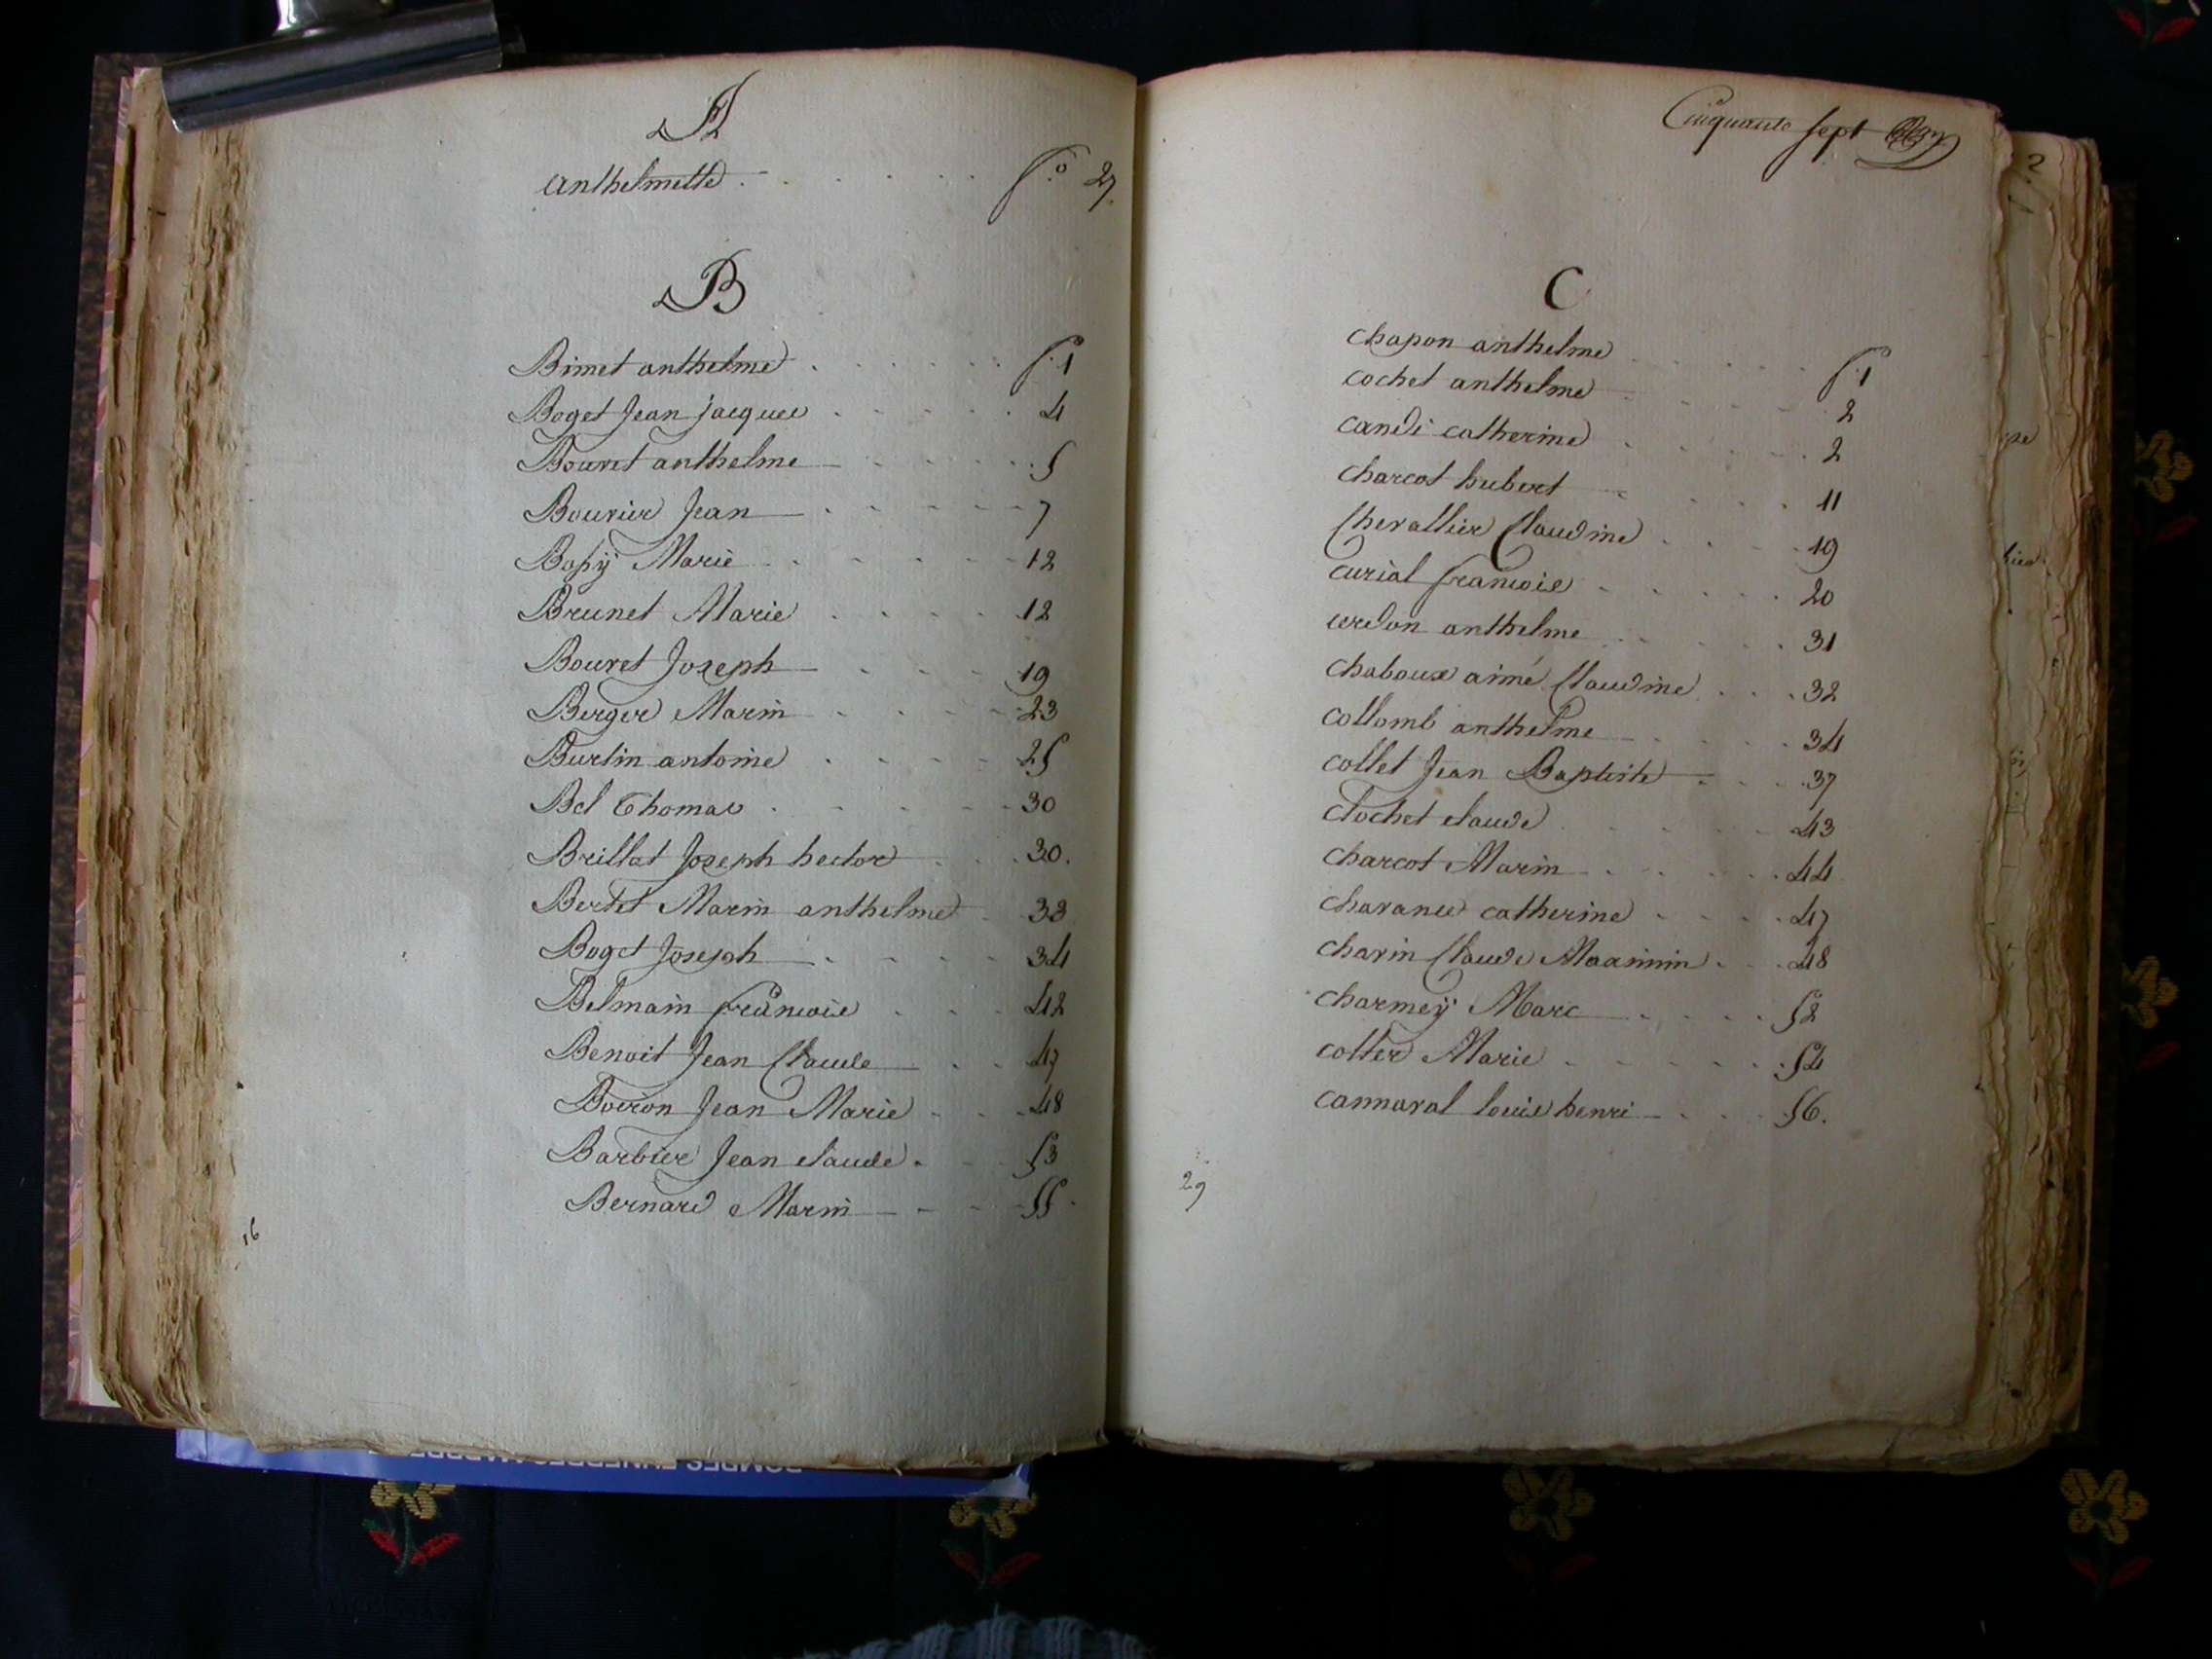 A
anthelmette . . . . . . fo 27.
B
Bimet anthelme . . . . . . f. 1
Boget Jean jacques . . . . . 4
Bouvet anthelme . . . . . 5
Bourier Jean . . . . . 7
Bossy Marie . . . . . 12
Brunet Marie . . . . 12
Bouvet Joseph . . . . 19
Berger Marin . . . . 23
Burlin antoine . . . . 25
Bel Thomas . . . . . 30
Brillat Joseph hector . . . 30.
Bertet Marin anthelme . 33
Boget Joseph . . . . . 34
Belmain francois . . . 42
Benoit Jean Claude . . 47
Boiron Jean Marie . . . 48
Barbier Jean claude . . 53
Bernard Marin . . . 55.
16
Cinquante sept
C
chapon anthelme . . . . . f. 1
cochet anthelme . . . . . 2
candi catherine . . . . . 2
charcot hubert . . . . 11
Chevallier Claudine . . . . 19
curial francois . . . . . 20
cerdon anthelme . . . . . 31
chaboux aimé Claudine . . . 32
collomb anthelme . . . . . 34
collet Jean Baptiste . . . 37
clochet claude . . . . . 43
charcot Marin . . . . . 44
charance catherine . . . . 47
charin Claude Maximin . . . 48
charmey Marc . . . . 52
cotter Marie . . . . . . 54
cannaral louis henri . . . . 56.
29